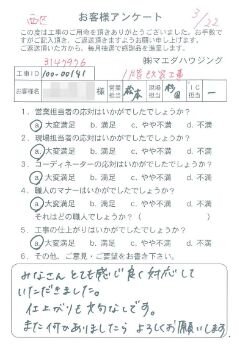 西区
お客様アンケート
3/22
この度は工事のご用命を頂きありがとうございました。お手数で
すがご記入頂き、ご返送頂きますようお願い申し上げます。
ご返送頂いた方から、毎月抽選で感謝品を進呈します。
㈱マエダハウジング
工事ID 100-00141
お客様名 様 営業 松本 一
1. 営業担当者の応対はいかがでしたでしょうか?
a. 大変満足 b. 満足 c. やや不満 d. 不満
2. 現場担当者の応対はいかがでしたでしょうか?
a. 大変満足 b. 満足 c. やや不満 d. 不満
3. コーディネーターの応対はいかがでしたでしょうか?
a. 大変満足 b. 満足 c. やや不満 d. 不満
4. 職人のマナーはいかがでしたでしょうか?
a. 大変満足 b. 満足 c. やや不満 d. 不満
それはどの職人でしょうか?( )
5. 工事の仕上がりはいかがでしたでしょうか?
a. 大変満足 b. 満足 c. やや不満 d. 不満
6. その他、ご意見・ご要望をお書き下さい。
みなさん とても感じ良く対応して
いただきました。
仕上がりも文句なしです。
また何かありましたら よろしくお願いします。